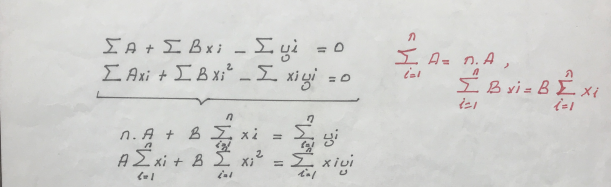 ∑ A + ∑ B xi − ∑ yi = 0
∑ Axi + ∑ B xi² − ∑ xiyi = 0
n.A + B ∑_{i=1}^{n} xi = ∑_{i=1}^{n} yi
A ∑_{i=1}^{n} xi + B ∑_{i=1}^{n} xi² = ∑_{i=1}^{n} xiyi
∑_{i=1}^{n} A = n.A ,
∑_{i=1}^{n} B xi = B ∑_{i=1}^{n} xi